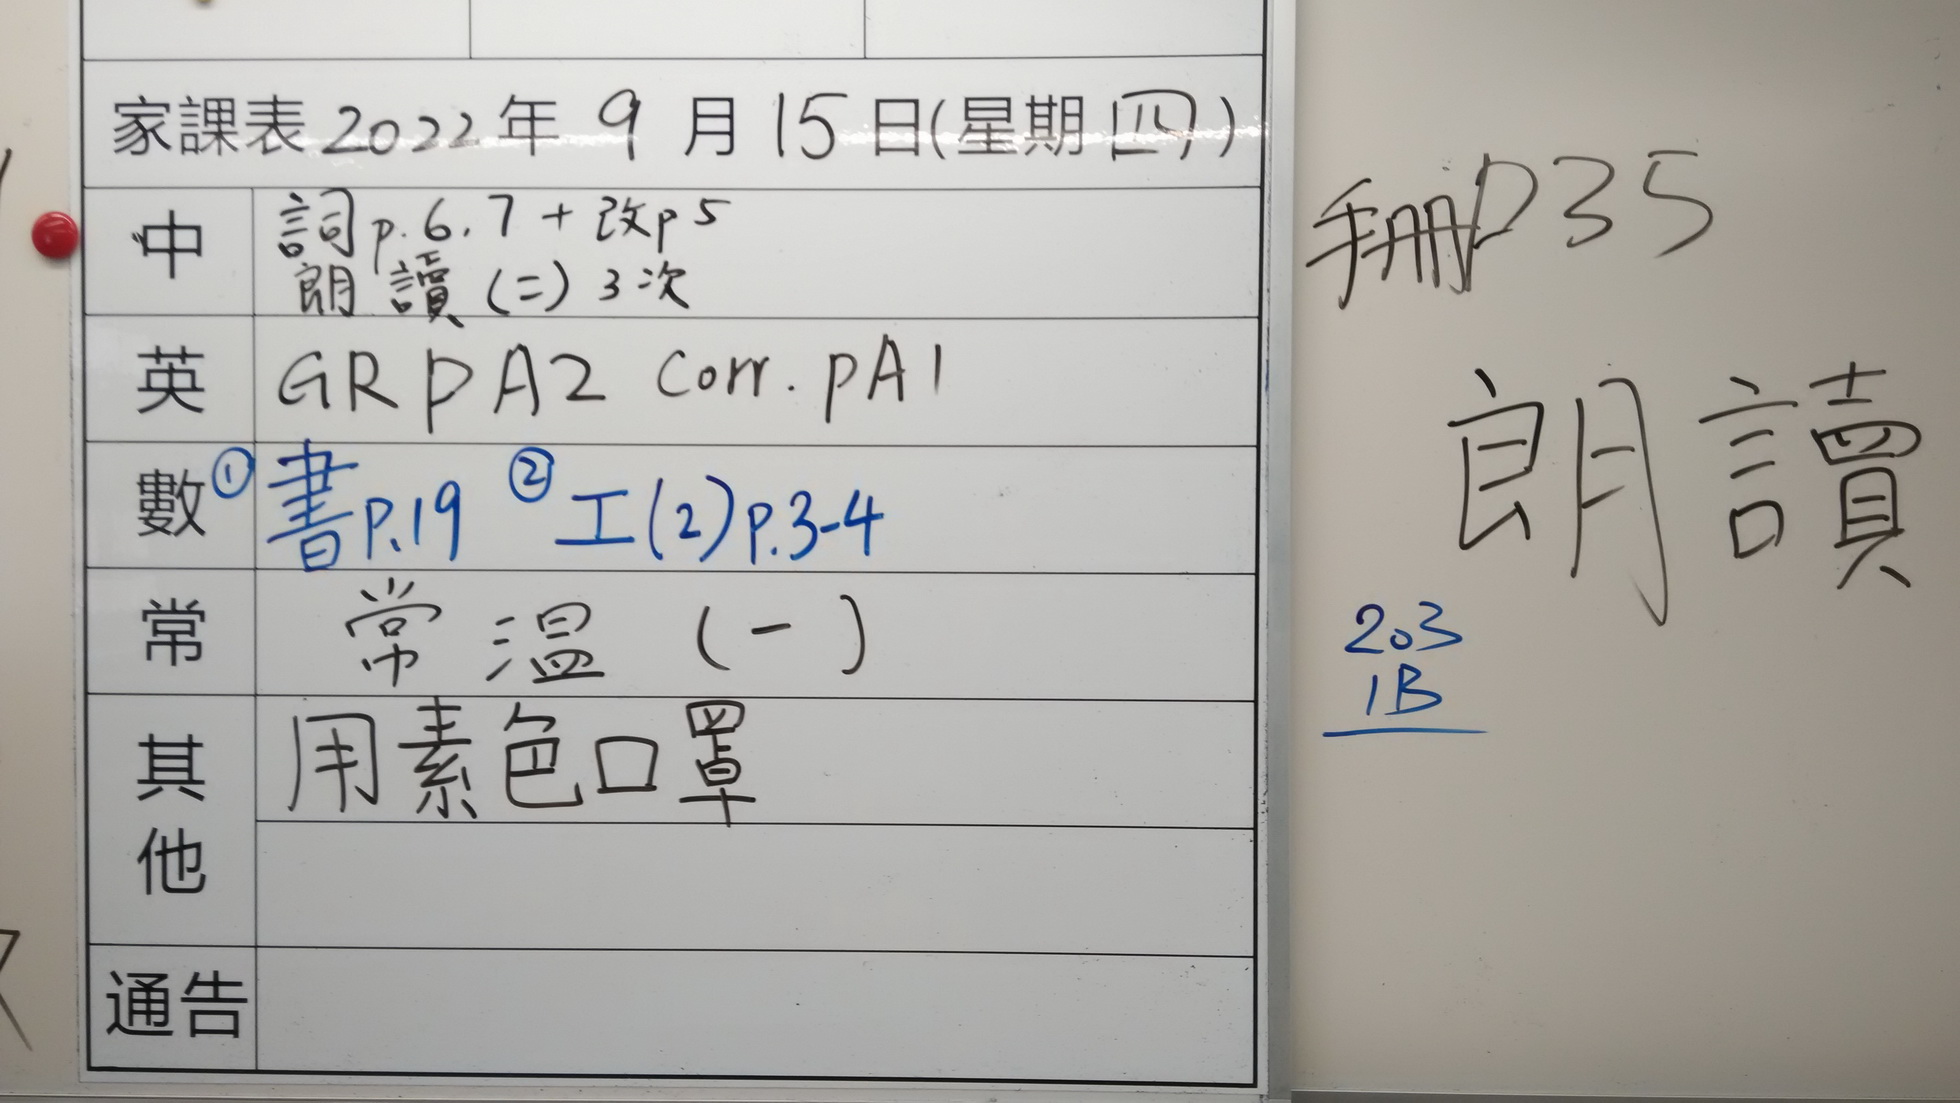 家課表 2022 年 9 月 15 日(星期 四)
中
詞 p.6.7 + 改p5
朗讀 (二) 3次
英
GR p A2 Corr. pA1
數
① 書p.19 ② 工(2)p.3-4
常
常 溫 (一)
其他
用素色口罩
通告
手冊P35
朗讀
203
1B